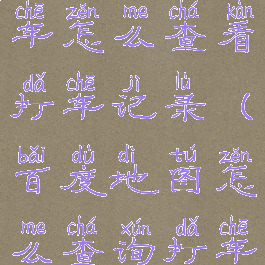 chē zěn me chá kàn
车怎么查看
dǎ chē jì lù
打车记录(
bǎi dù dì tú zěn
百度地图怎
me chá xún dǎ chē
么查询打车